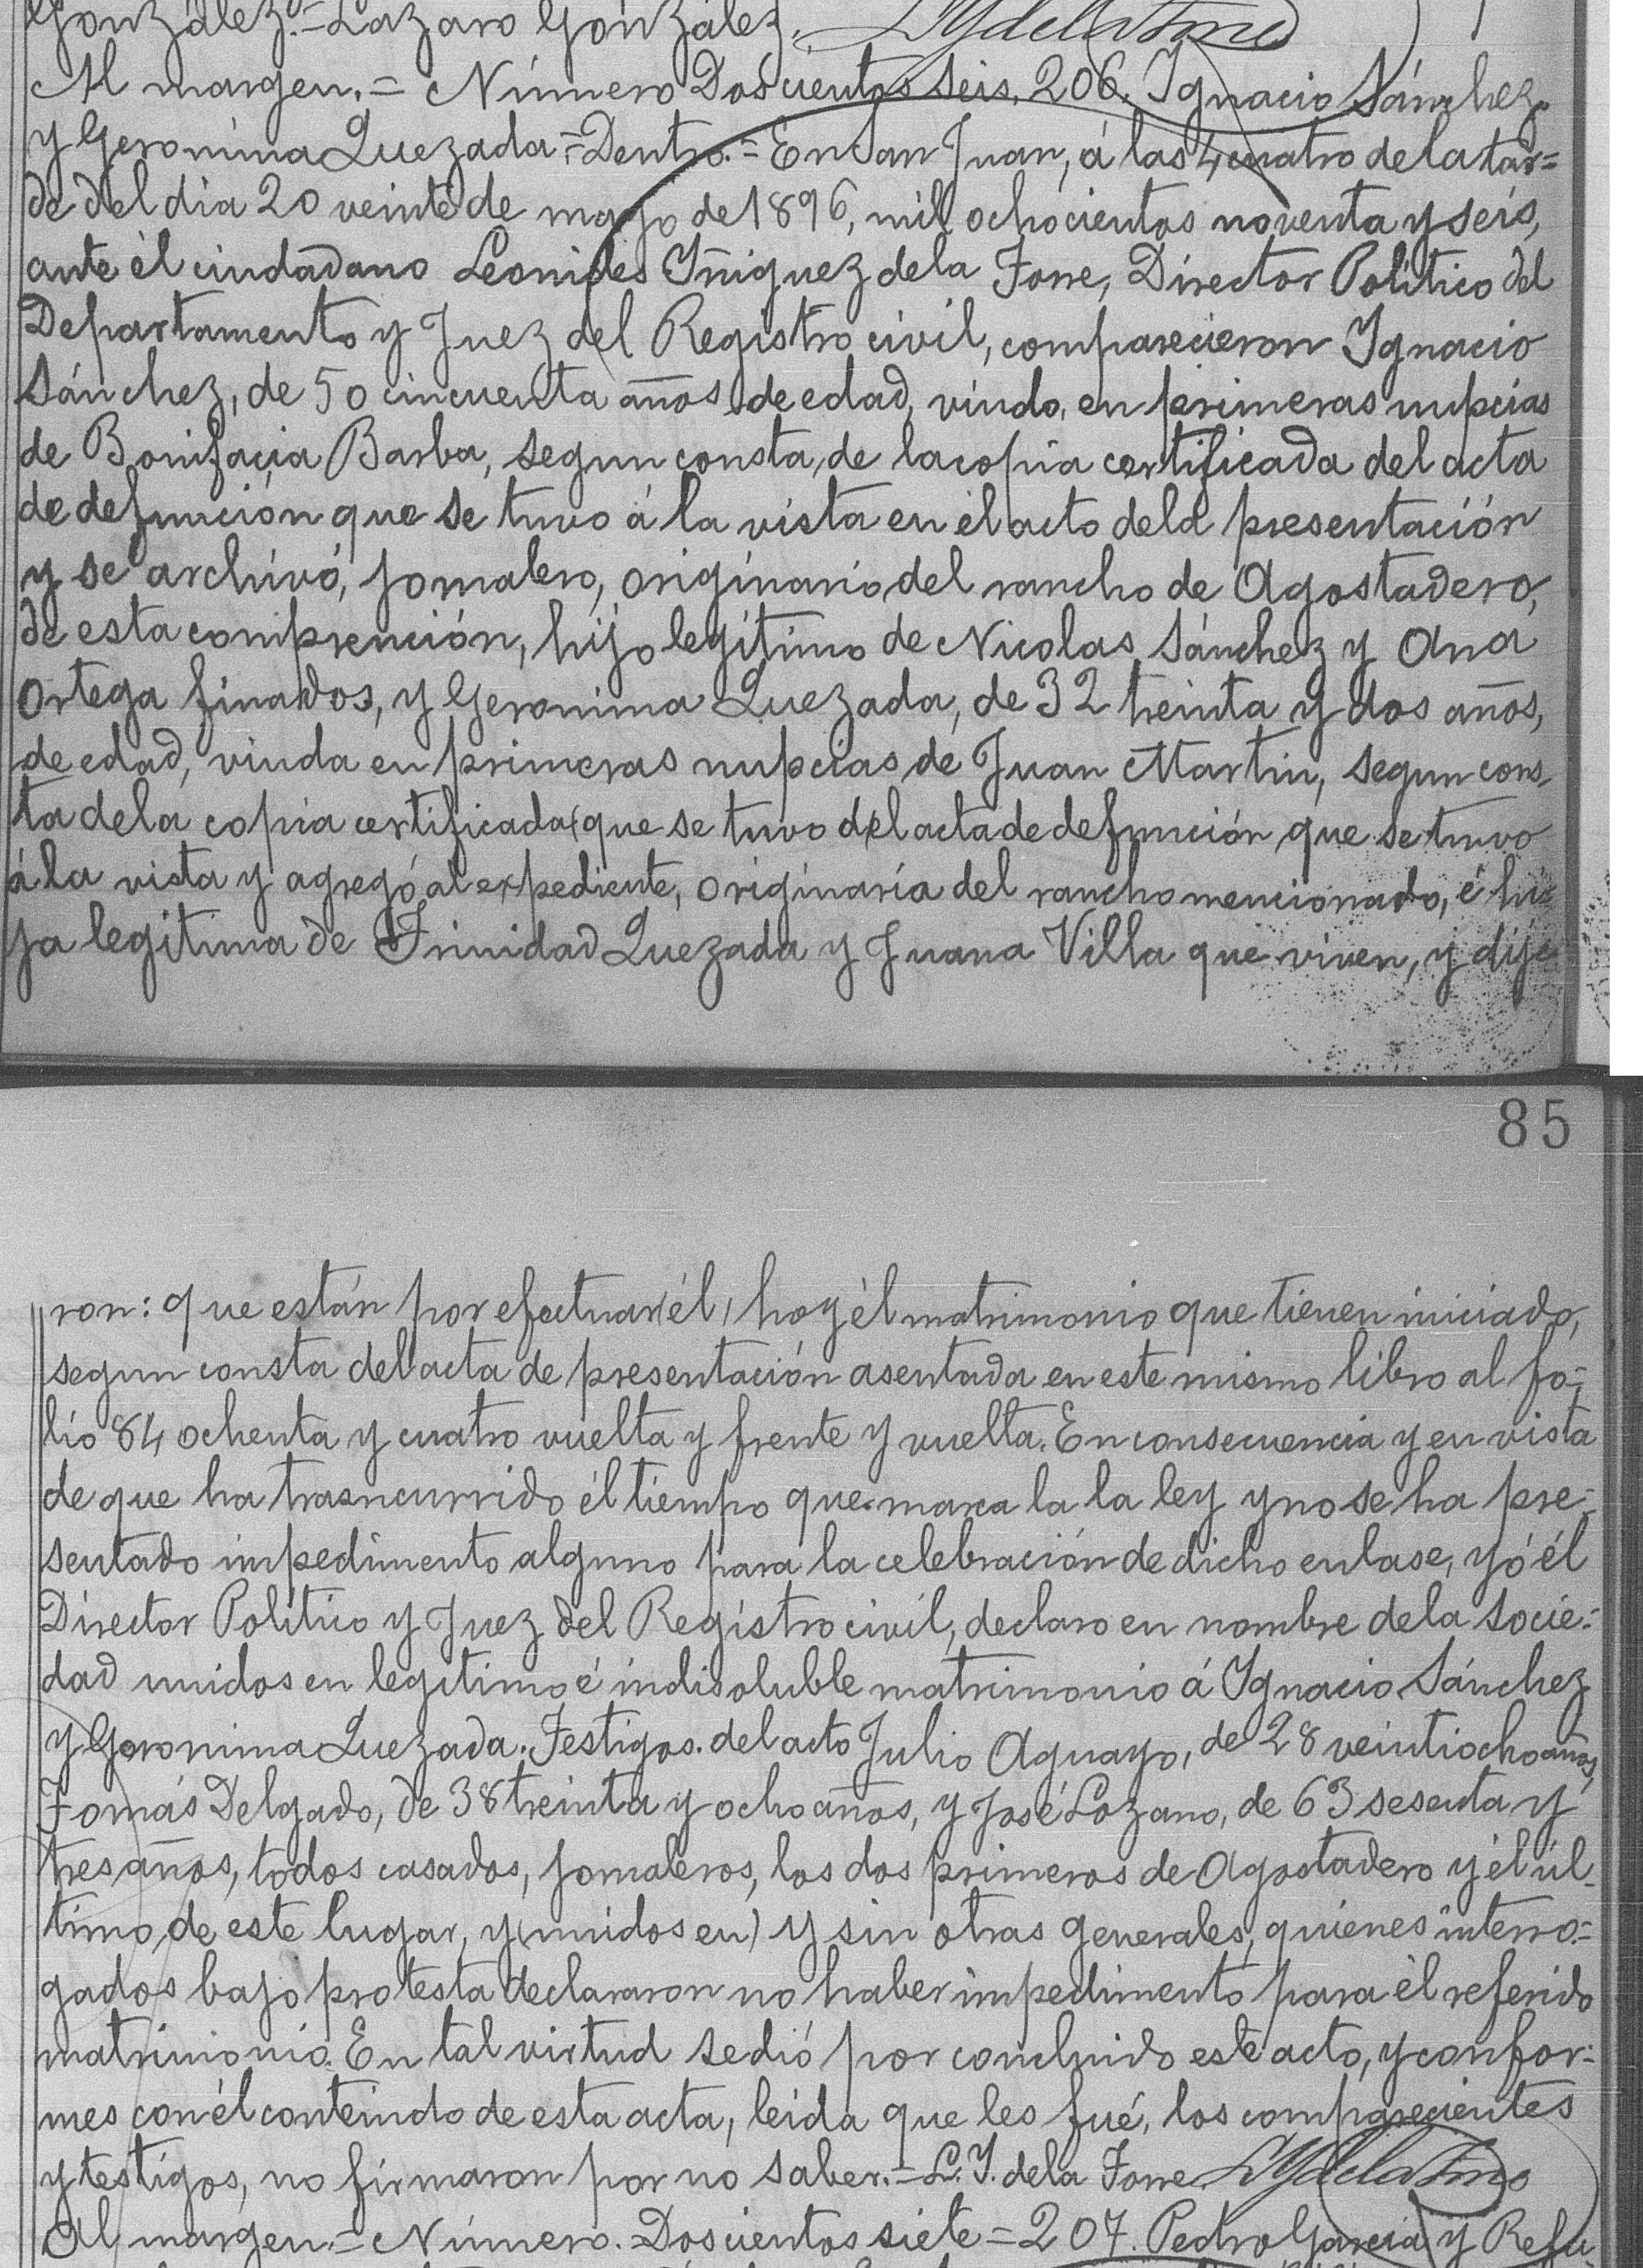 González.=Lazaro González. LYdelaTorre
Al margen.= Número Doscientos seis. 206. Ygnacio Sánchez
y Geronima Quezada.=Dentro.= En San Juan, á las 4 cuatro de la tar=
de del dia 20 veinte de mayo de 1896, mil ochocientos noventa y seis,
ante él ciudadano Leonides Yñiguez dela Torre, Director Político del
Departamento y Juez del Registro civil, comparecieron Ygnacio
Sánchez, de 50 cincuenta años de edad, viudo, en primeras nupcias
de Bonifacia Barba, segun consta, de la copia certificada del acta
de defunción que se tuvo á la vista en él acto dela presentación
y se archivó, jornalero, originario del rancho de Agostadero,
de esta comprención, hijo legítimo de Nicolas Sánchez y Ana
Ortega finados, y Geronima Quezada, de 32 treinta y dos años,
de edad, viuda en primeras nupcias de Juan Martin, segun cons-
ta dela copia certificada(que se tuvo del acta de defunción que se tuvo
á la vista y agregó al expediente, originaria del rancho mencionado, é hi=
ja legitima de Trinidad Quezada y Juana Villa que viven, y dije
85
ron: que están por efectuar(él) hoy él matrimonio que tienen iniciado,
segun consta del acta de presentación asentada en este mismo libro al fo=
lio 84 ochenta y cuatro vuelta y frente y vuelta. En consecuencia y en vista
de que ha trasncurrido él tiempo que marca la la ley y no se ha pre=
sentado impedimento alguno para la celebración de dicho enlase, yó él
Director Político y Juez del Registro civil, declaro en nombre dela socie=
dad unidos en legítimo é indisoluble matrimonio á Ygnacio Sánchez
y Geronima Quezada. Testigos. del acto Julio Aguayo, de 28 veintiocho años,
Tomás Delgado, de 38 treinta y ocho años, y José Lozano, de 63 sesenta y
tres años, todos casados, jornaleros, los dos primeros de Agostadero y él úl-
timo de este lugar, y(unidos en) y sin otras generales, quienes interro=
gados bajo protesta declararon no haber impedimento para él referido
matrimonio. En tal virtud se dió por concluido este acto, y confor=
mes con él contenido de esta acta, leida que les fué, los comparecientes
y testigos, no firmaron por no saber.=L.Y. dela Torre. LYdelaTorre
Al margen.= Número. Doscientos siete = 207. Pedro Garcia y Refu